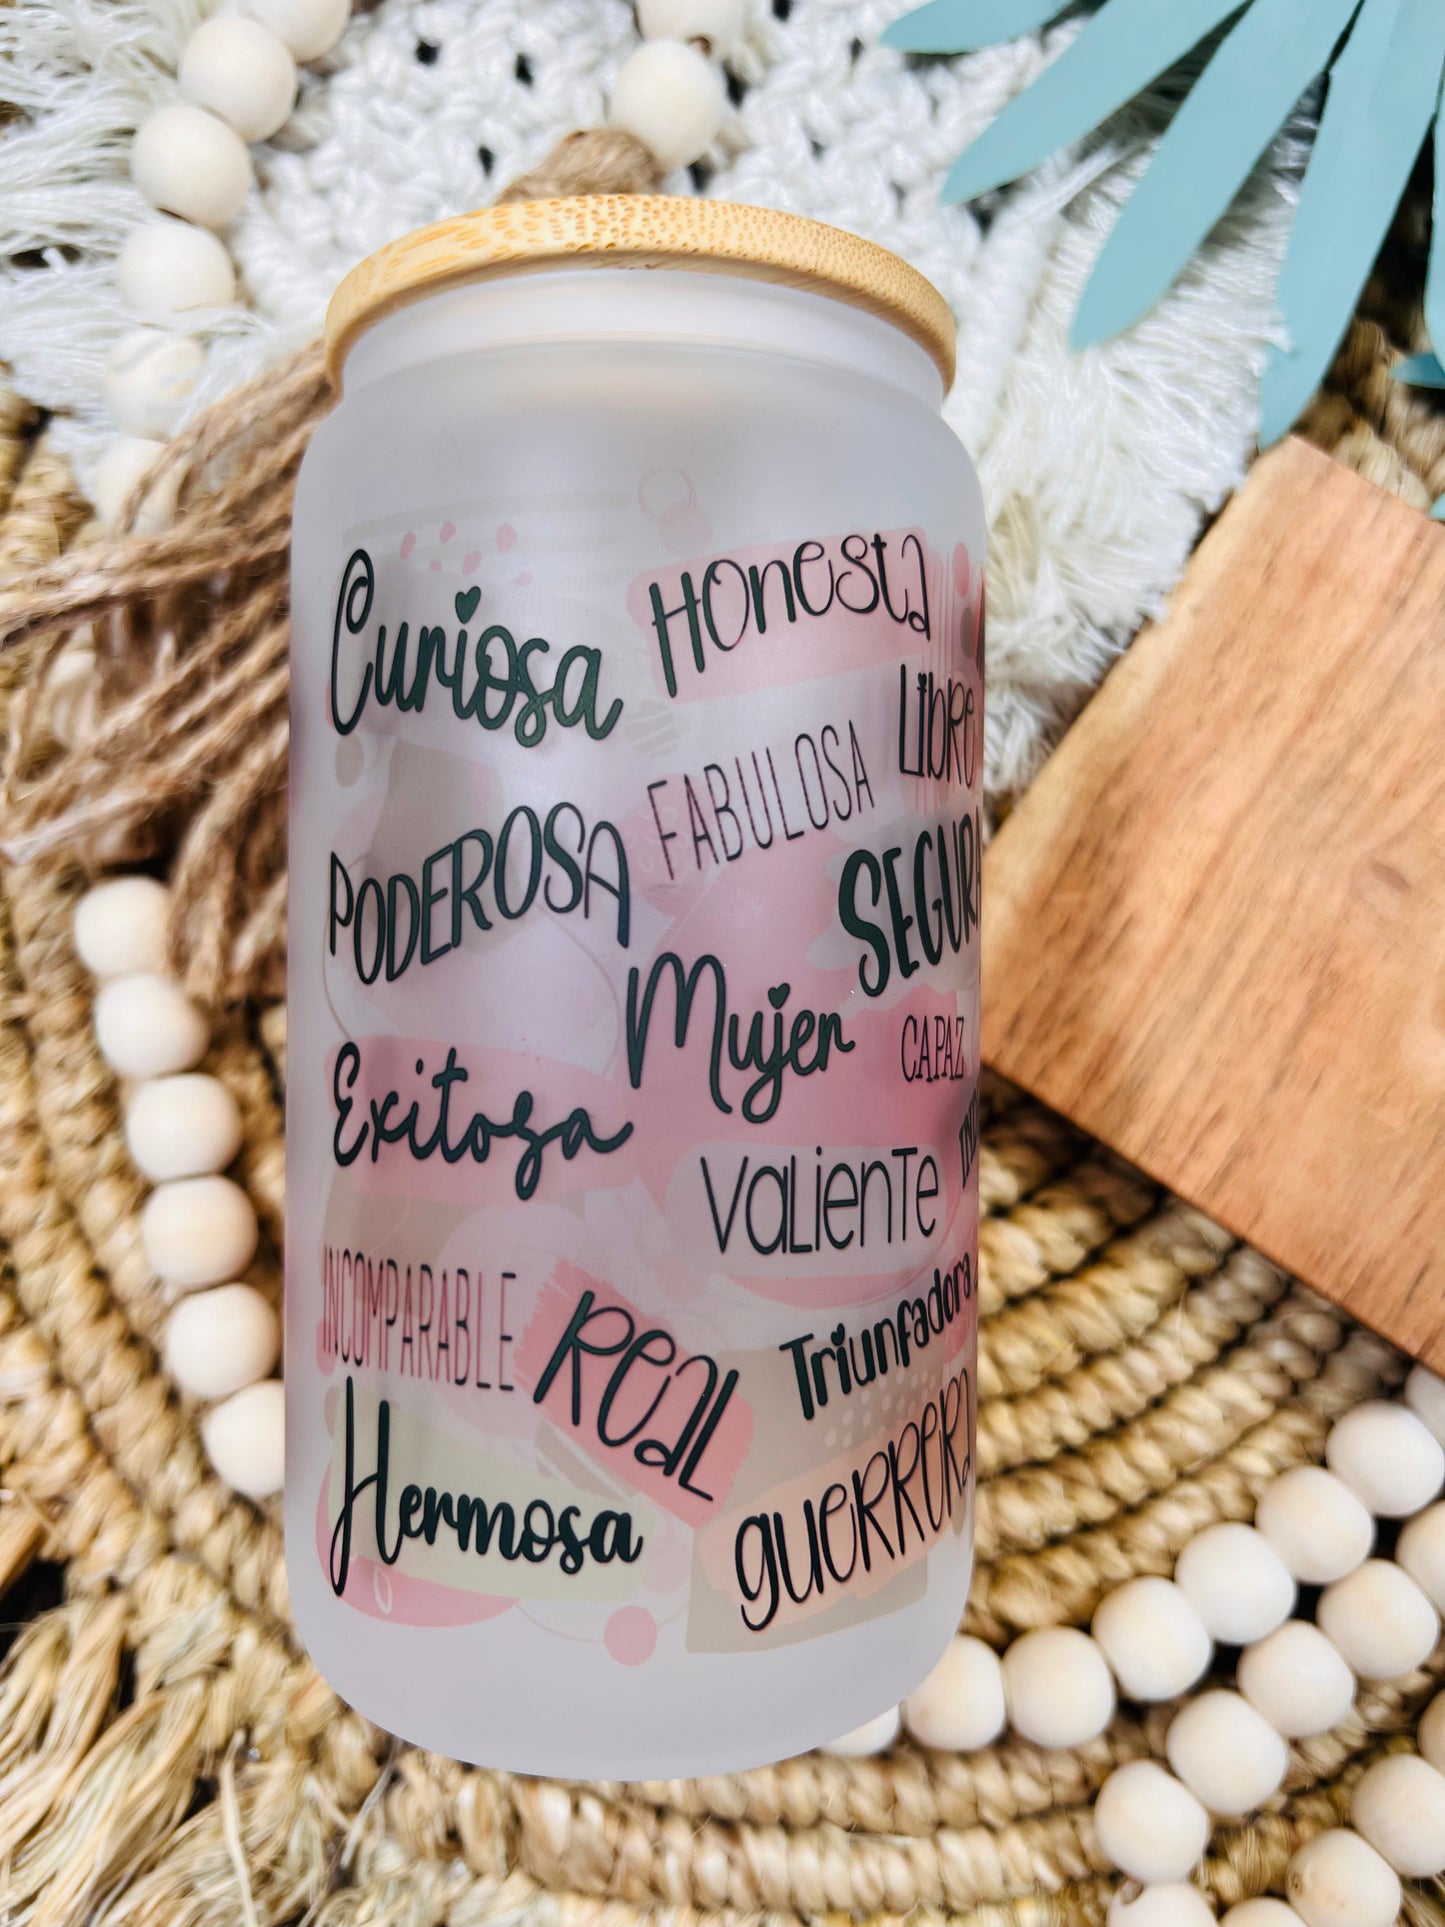 Curiosa
Honesta
Libre
PODEROSA
FABULOSA
SEGURA
Mujer
CAPAZ
Exitosa
Valiente
INCOMPARABLE
Real
Triunfadora
Hermosa
guerrera